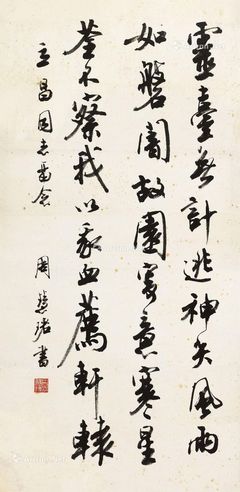 靈臺無計逃神矢風雨
如磐闇故園寄意寒星
荃不察我以我血薦軒轅
立昌同志留念
周慧珺書